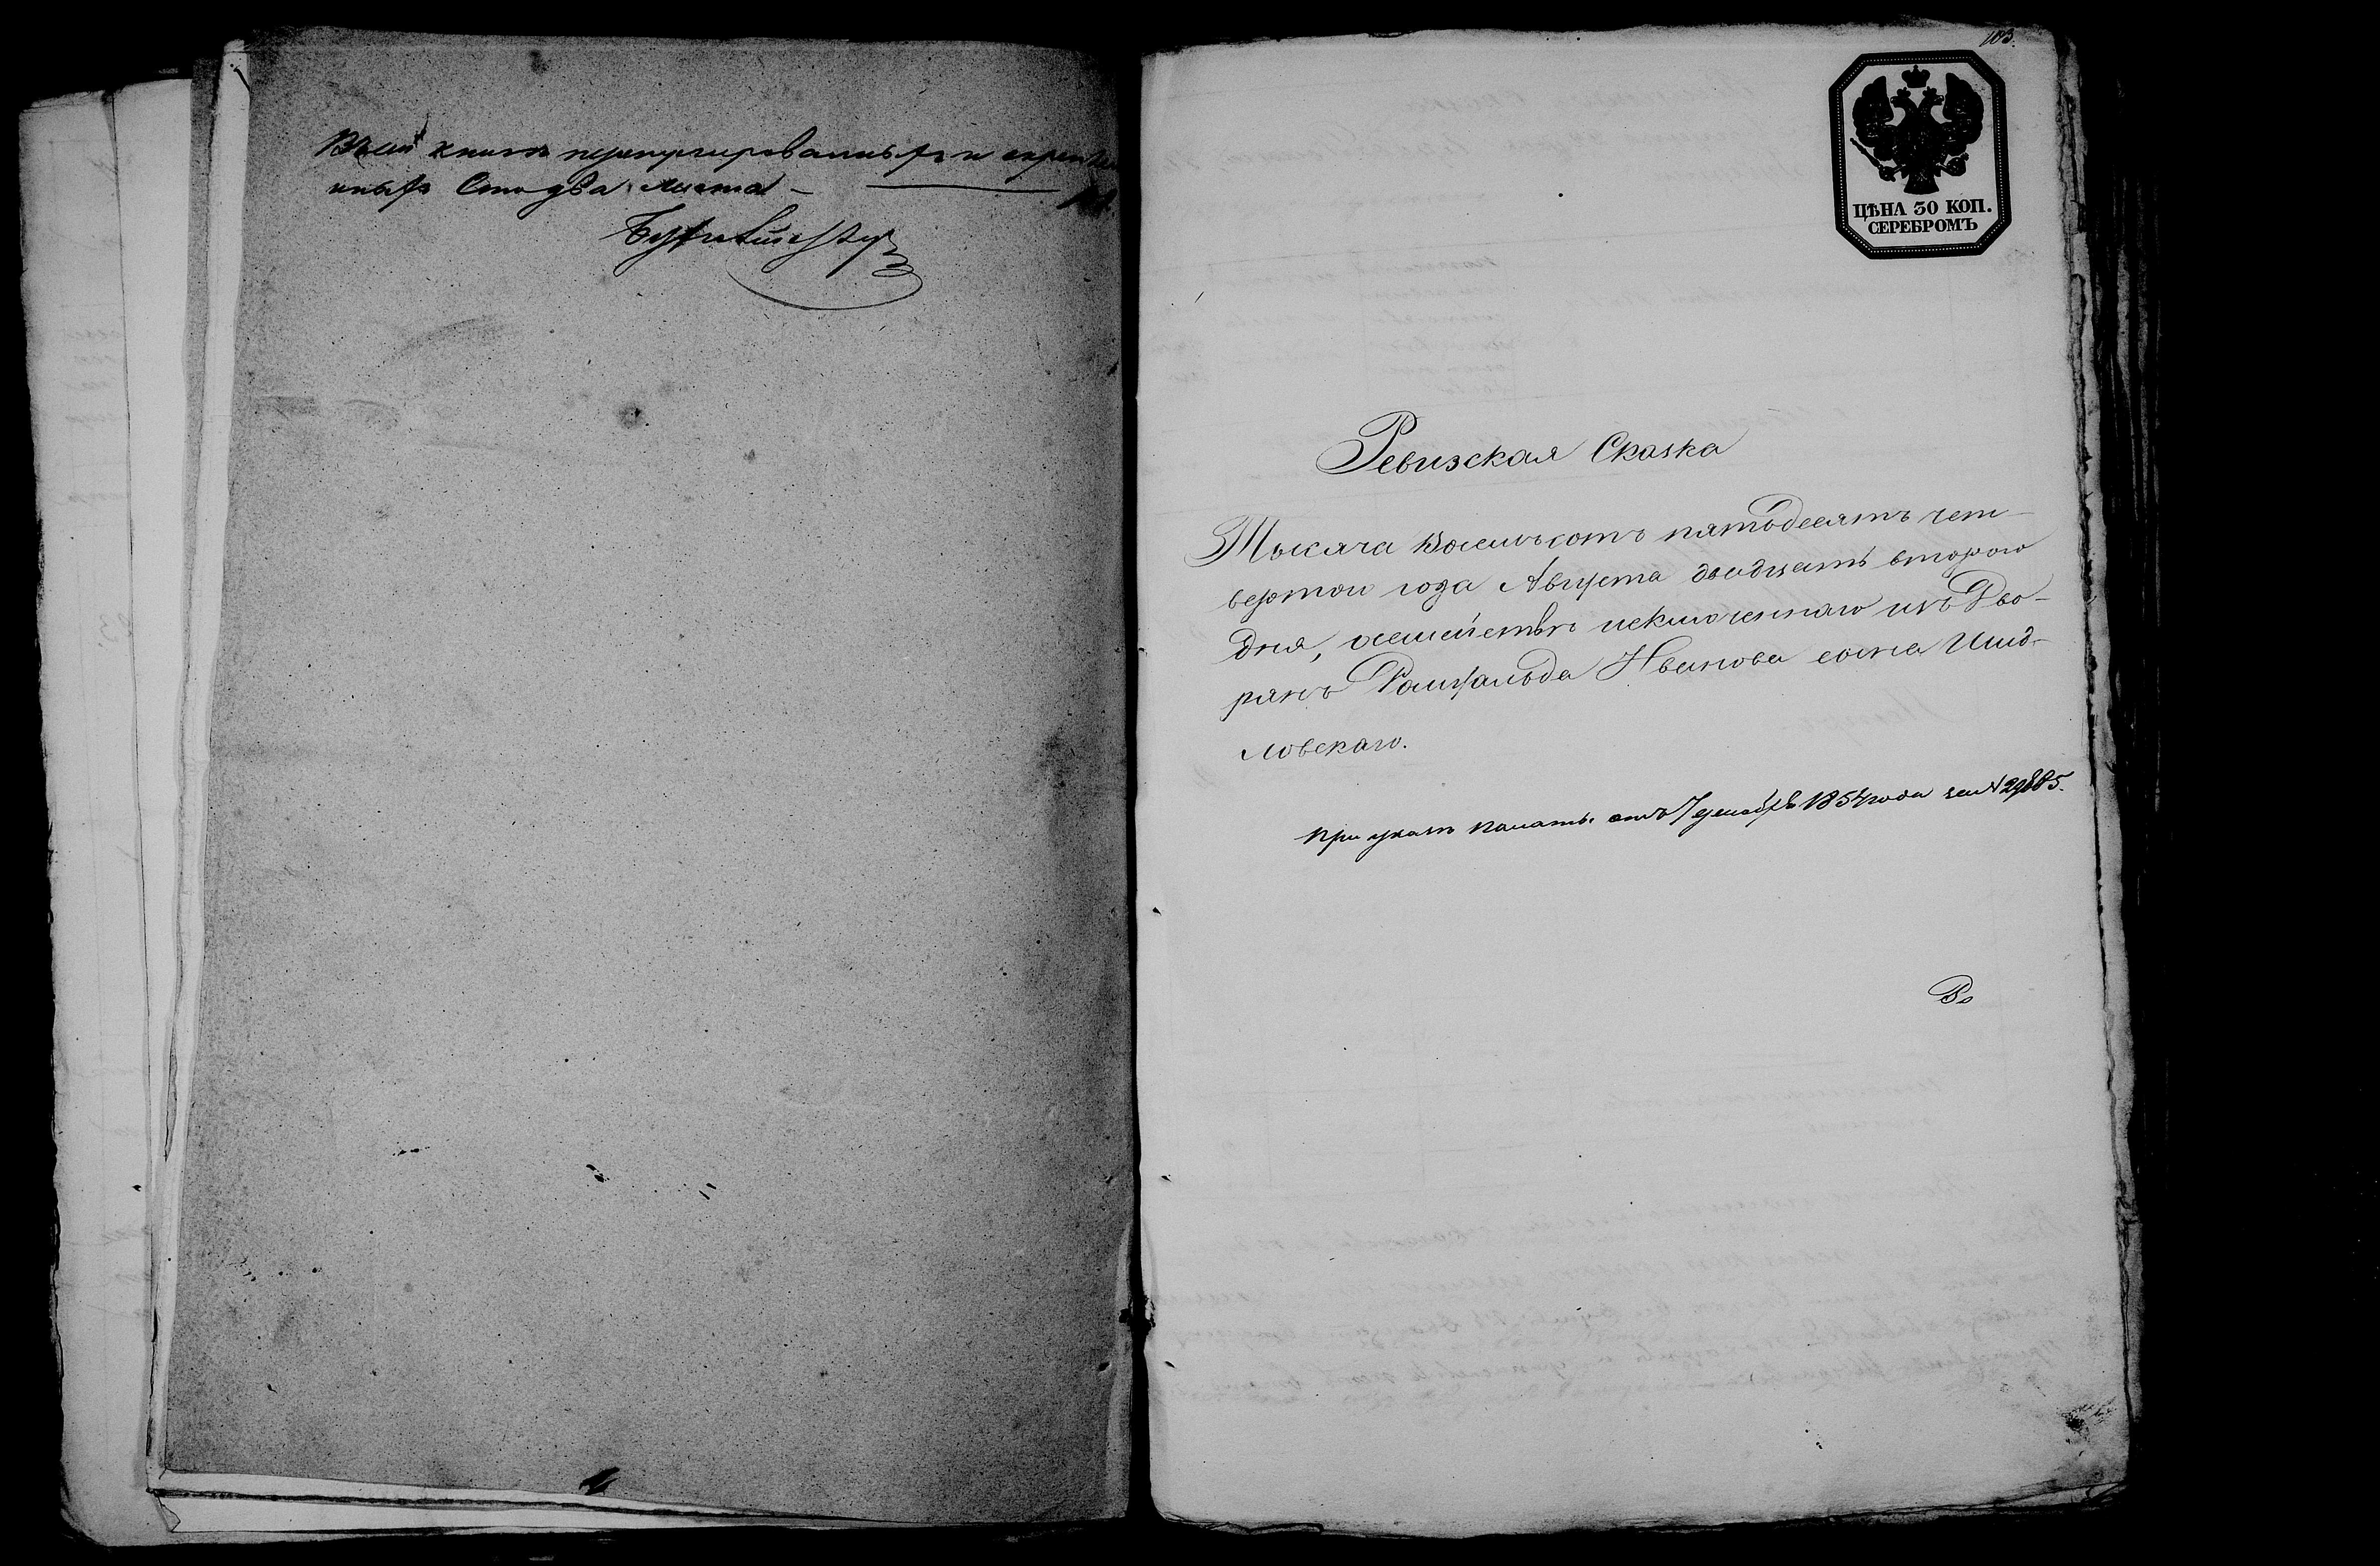 Въ сей книгѣ перенумерованныхъ и скрѣплен
ныхъ Сто два листа —
103.
ЦѢНА 30 КОП.
СЕРЕБРОМЪ
Ревизская Сказка
Тысяча восемьсотъ пятьдесятъ чет-
вертого года Августа двадцать второго
дня, о семействѣ исключеннаго изъ Дво-
рянъ Ромуальда Иванова сына Шид-
ловскаго.
При указѣ палаты отъ 7 декабря 1854 года за N 29885.